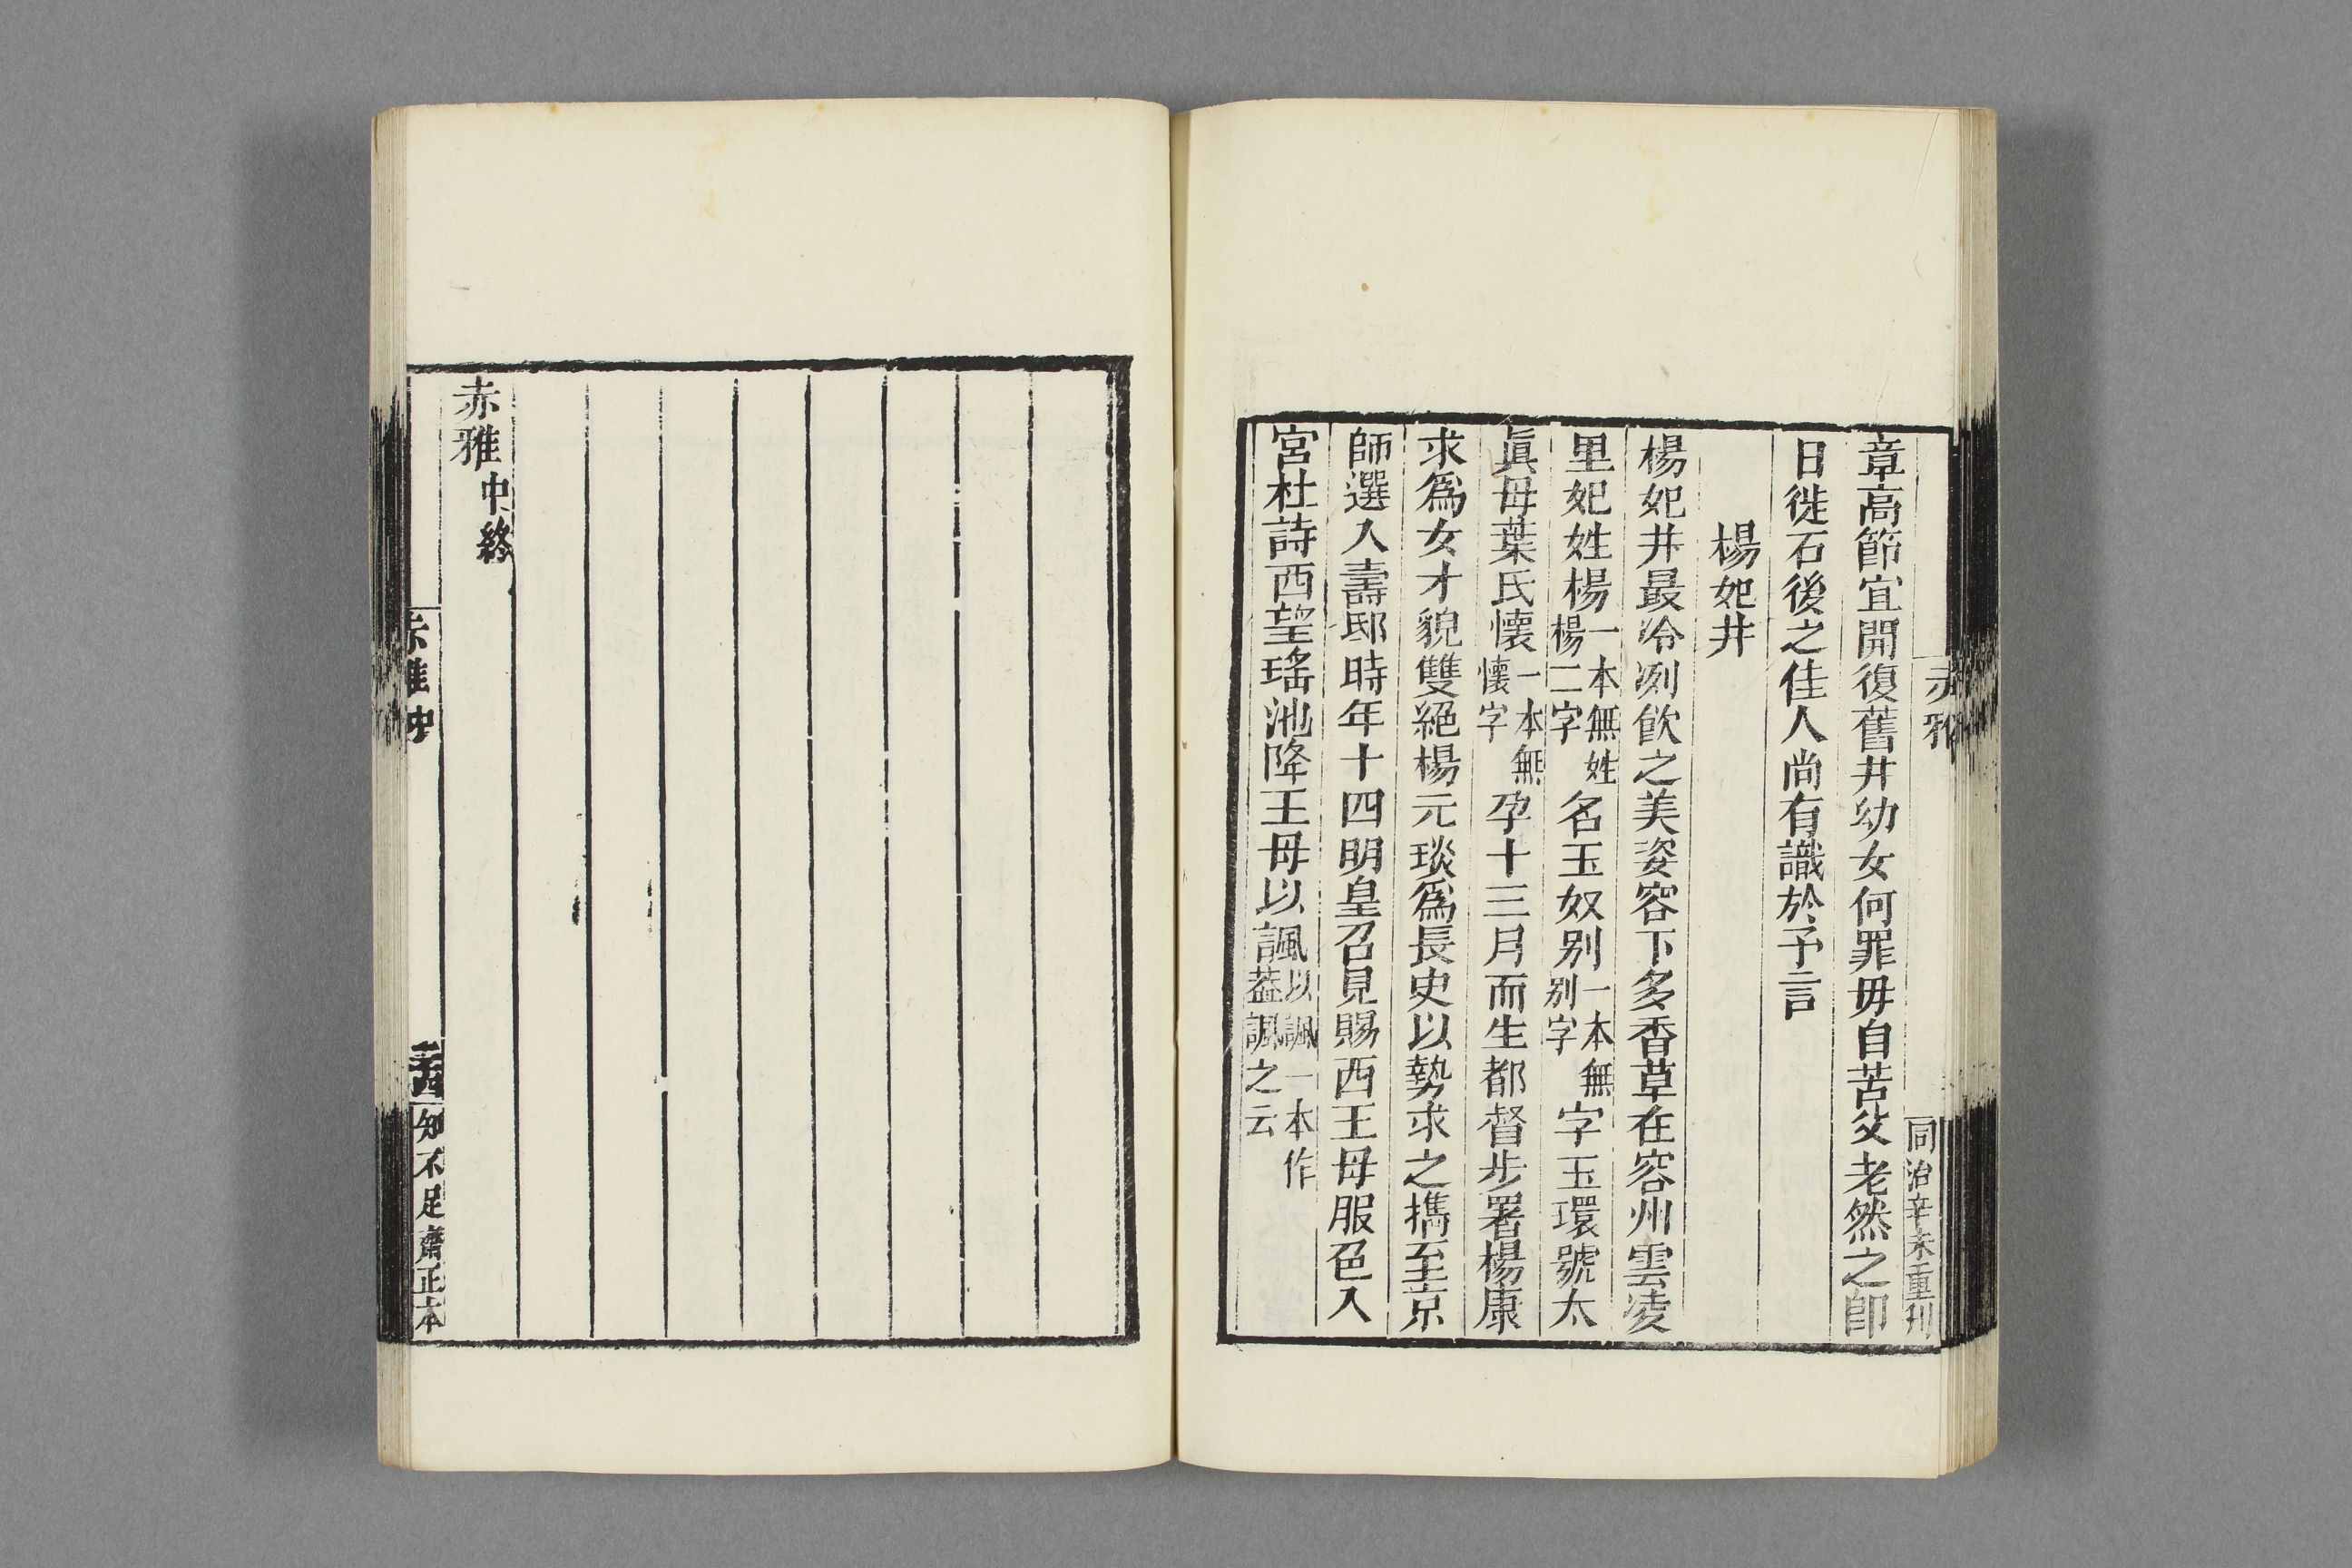 赤雅
同治辛未重刊
章高節宜開復舊井幼女何罪毋自苦父老然之卽
日徙石後之佳人尚有識於予言
楊妃井
楊妃井最冷冽飮之美姿容下多香草在容州雲凌
里妃姓楊一本無姓楊二字名玉奴別一本無別字字玉環號太
眞母葉氏懷一本無懷字孕十三月而生都督步署楊康
求爲女才貌雙絕楊元琰爲長史以勢求之攜至京
師選入壽邸時年十四明皇召見賜西王母服色入
宮杜詩西望瑤池降王母以諷以諷一本作葢諷之云
赤雅中終
赤雅中
三十四
知不足齋正本